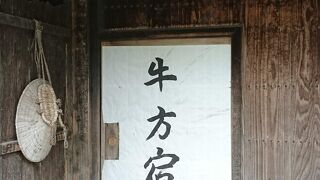 牛方宿